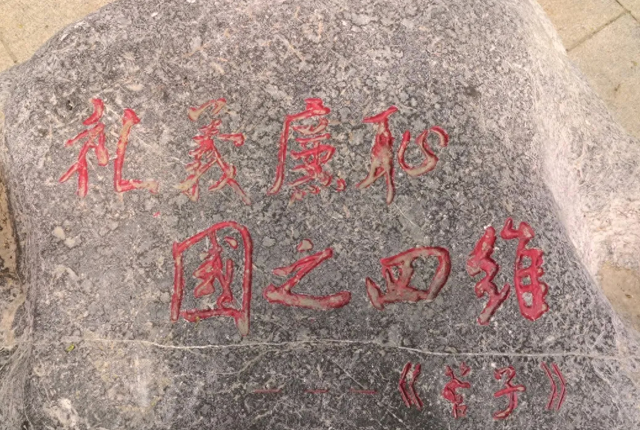 礼義廉恥
國之四維
———《管子》